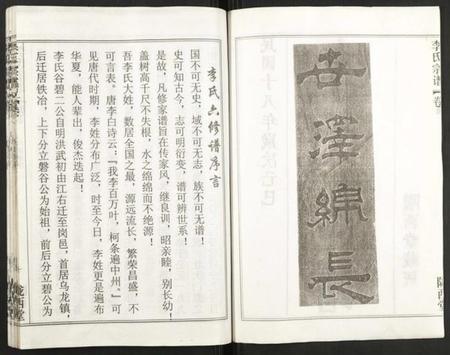 李氏宗谱 卷一
世澤綿長
隴西堂
李氏六修谱序言
国不可无史，域不可无志，族不可无谱！
史可知古今，志可明衍变，谱可辨世系！
是故，凡修家谱旨在传家风，继良训，昭亲睦，别长幼！
盖树高千尺不失根，水之绵绵而不绝源！
吾李氏大姓，数居全国之最，源远流长，繁荣昌盛，不
可言表。唐李白诗云：“我李百万叶，柯条遍中州。”可
见唐代时期，李姓分布广泛，时至今日，李姓更是遍布
华夏，能人辈出，俊杰迭起！
李氏谷碧二公自明洪武初由江右迁至岗邑，首居乌龙镇，
后迁居铁冶，上下分立磐谷公为始祖，前后分立碧公为
陇西堂